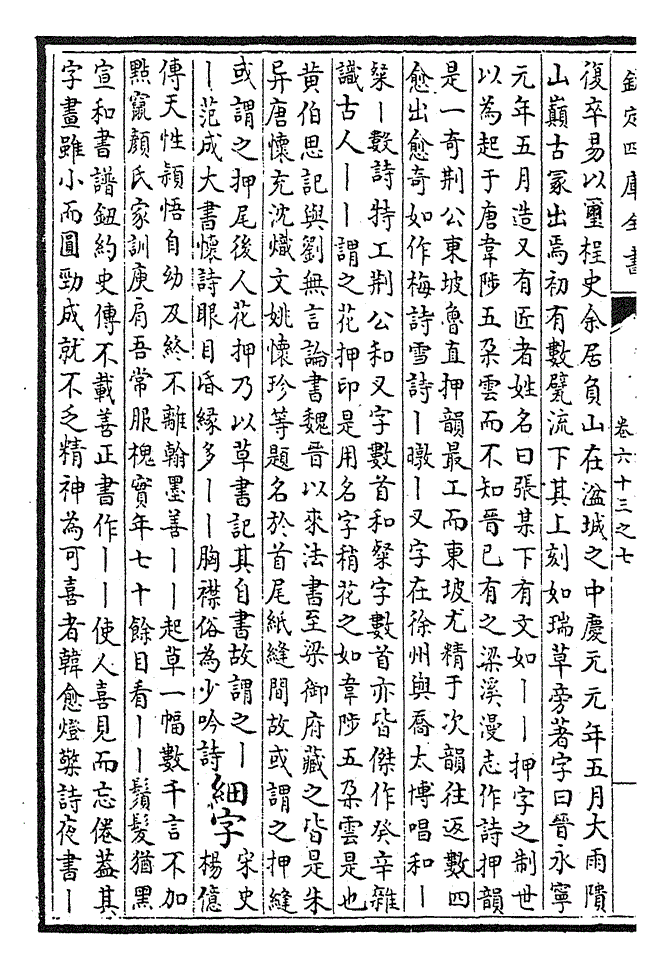 欽定四庫全書
卷六十三之七
復卒易以璽桯史余居負山在湓城之中慶元元年五月大雨隤
山巔古冢出焉初有數甓流下其上刻如瑞草旁著字曰晉永寧
元年五月造又有匠者姓名曰張某下有文如丨丨押字之制世
以為起于唐韋陟五朶雲而不知晉已有之梁溪漫志作詩押韻
是一奇荆公東坡魯直押韻最工而東坡尤精于次韻往返數四
愈出愈奇如作梅詩雪詩丨暾丨叉字在徐州與喬太博唱和丨
粲丨數詩特工荆公和叉字數首和粲字數首亦皆傑作癸辛雜
識古人丨丨謂之花押印是用名字稍花之如韋陟五朶雲是也
黄伯思記與劉無言論書魏晉以來法書至梁御府藏之皆是朱
异唐懷充沈熾文姚懷珍等題名於首尾紙縫間故或謂之押縫
或謂之押尾後人花押乃以草書記其自書故謂之丨細字宋史
丨范成大書懷詩眼目昏緣多丨丨胸襟俗為少吟詩楊億
傳天性頴悟自幼及終不離翰墨善丨丨起草一幅數千言不加
點竄顔氏家訓庾肩吾常服槐實年七十餘目看丨丨鬚髮猶黑
宣和書譜鈕約史傳不載善正書作丨丨使人喜見而忘倦葢其
字畫雖小而圓勁成就不乏精神為可喜者韓愈燈檠詩夜書丨